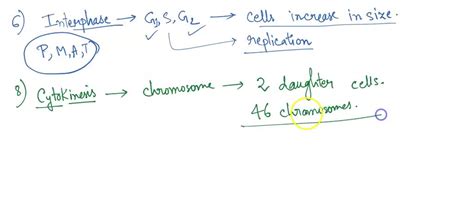 6) Interphase → G1, S, G2 → cells increase in size.
→ replication
P, M, A, T
8) Cytokinesis → chromosome → 2 daughter cells.
46 chromosomes.